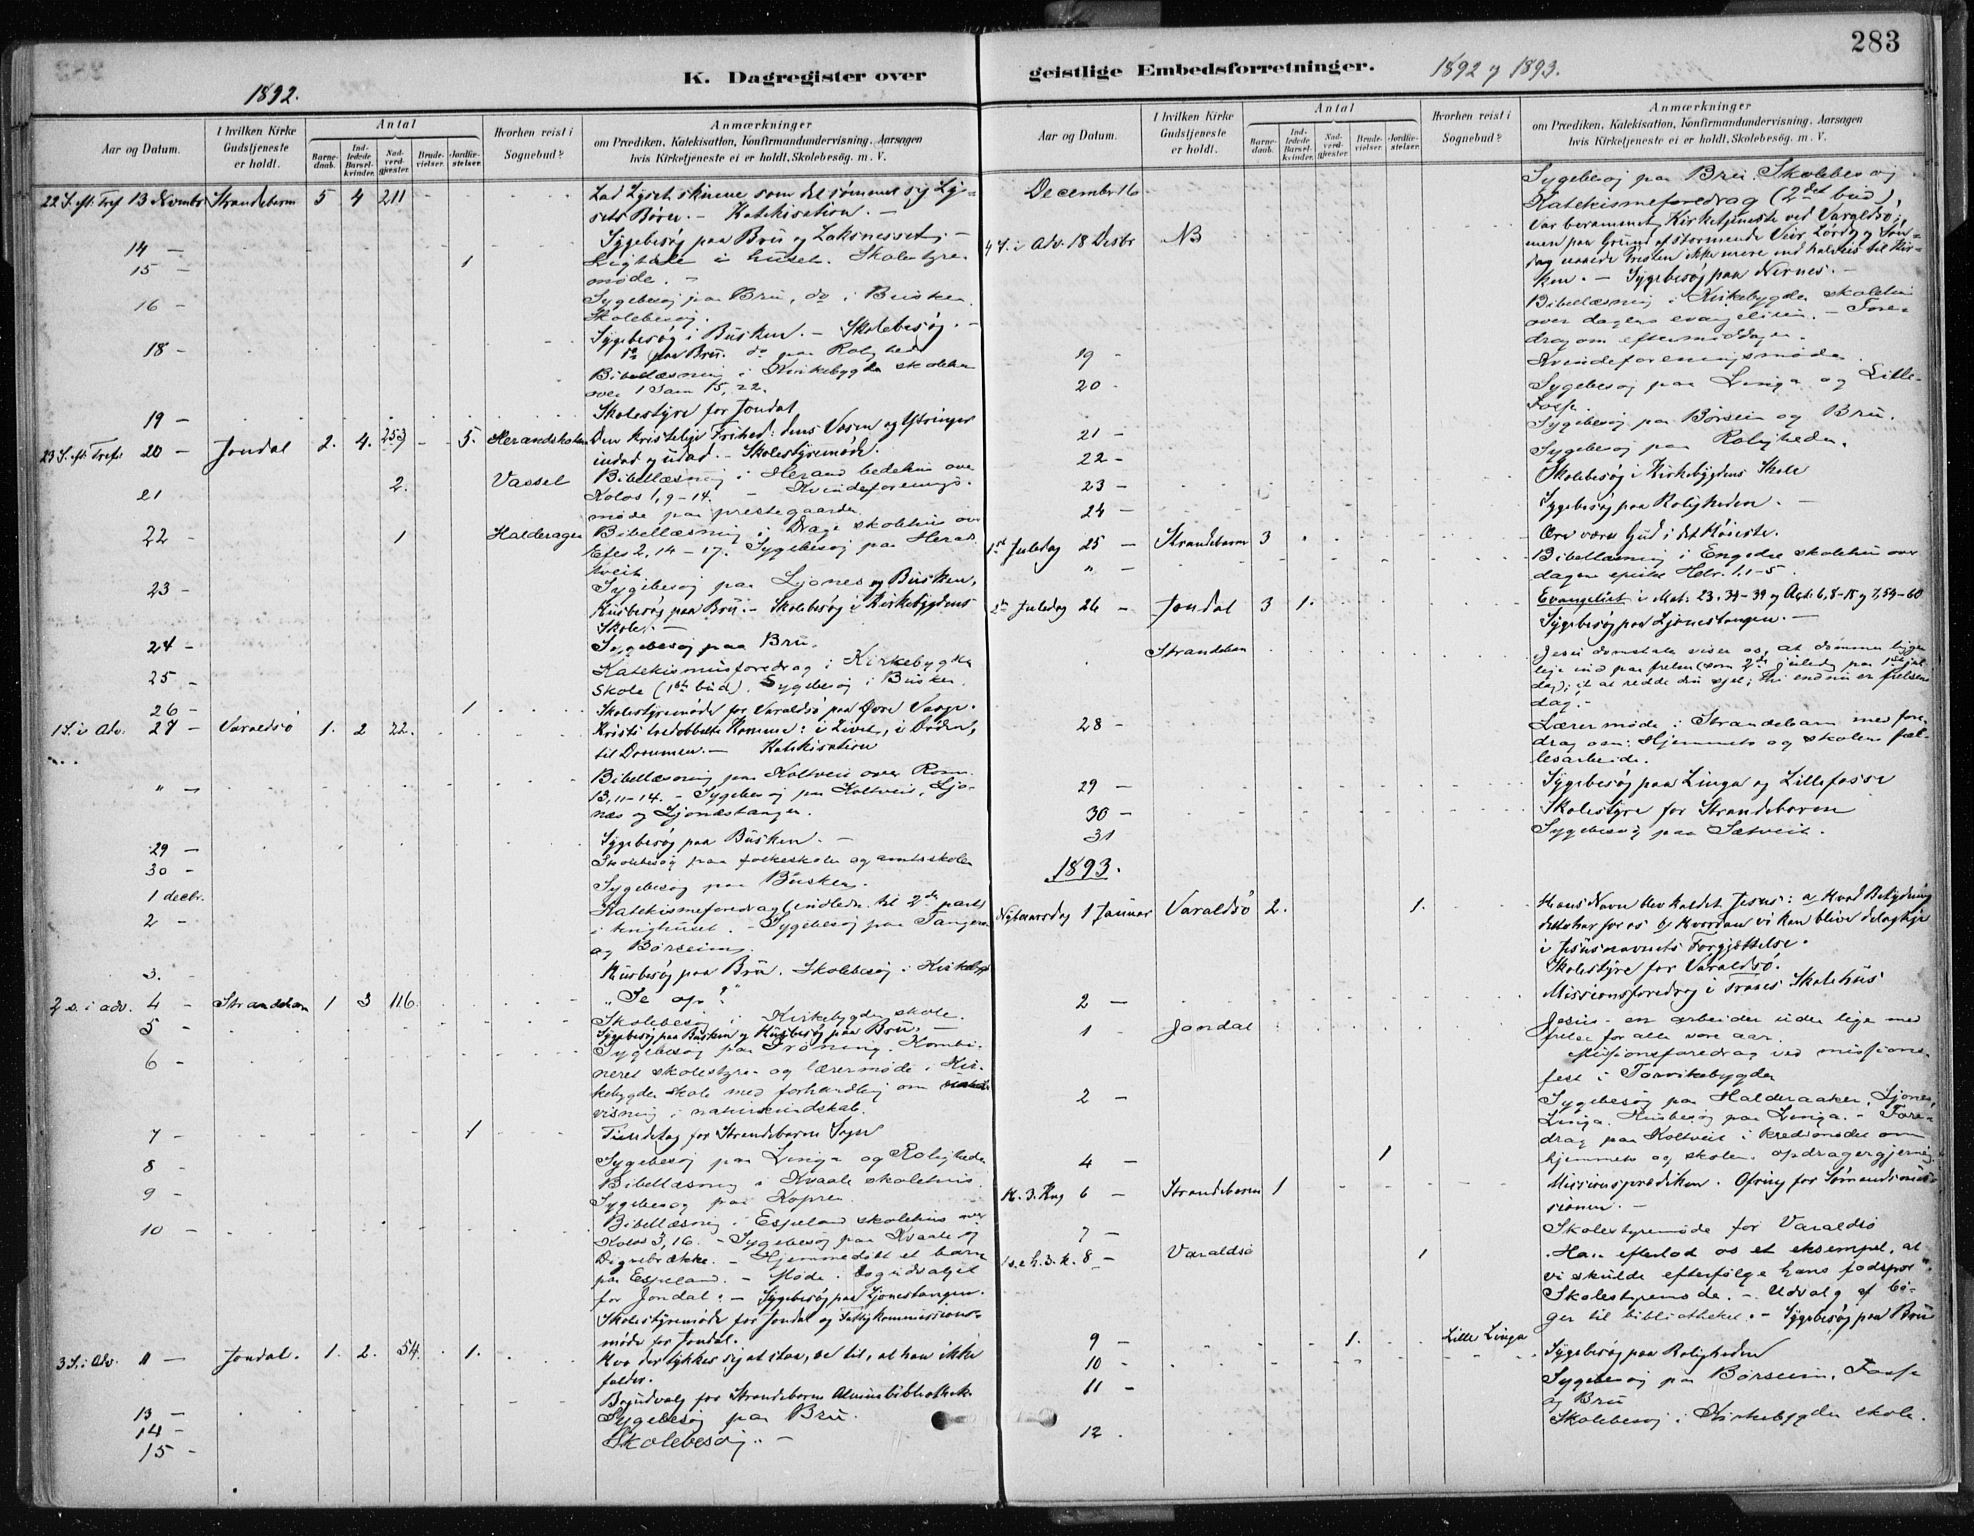 283
K. Dagregister over
geistlige Embedsforretninger.
1892.
1892 og 1893.
Aar og Datum.
I hvilken Kirke Gudstjeneste er holdt.
Antal
Barnedaab.
Indledede Barselkvinder.
Nadverdgjæster.
Brudevielser.
Jordfæstelser.
Hvorhen reist i Sognebud?
Anmærkninger
om Prædiken, Katekisation, Konfirmandundervisning, Aarsagen
hvis Kirketjeneste ei er holdt, Skolebesøg, m. V.
22 S. eft. Tref. 13 Novmbr Strandebarm 5 4 211 Lad Lyset skinne som det sømmer sig Ly-
sets Børn. - Katekisation. -
14 - Sygebesøg paa Bru og Laksnesset, -
15 - 1 Ligtale i huset. Skolestyre-
møde. -
16 - Sygebesøg paa Bru, do i Busken.
Skolebesøg.
18 - Sygebesøg i Busken. - Skolebesøg. -
do paa Bru. do paa Rolighed
Bibellæsning i Kirkebygden skolehus
over 1 Sam 15,22.
19 - Skolestyre for Jondal
23 S. eft. Tref. 20 - Jondal 2. 4. 253 5. Herandsholm Den kristelige Frihed: dens Væsen og Ytringer
indad og udad. - Skolestyremøde.
21 2. Vassel Bibellæsning i Herand bedehus over
Kolos 1,9-14. - Kvindeforenings-
møde paa prestegaarden
22 - 1 Halderager Bibellæsning i Drage skolehus over
Efes 2,14-17. Sygebesøg paa Herad-
tveit
23 - Sygebesøg paa Ljones og Busken,
Husbesøg paa Bru. - Skolebesøg i Kirkebygdens
Skole. -
24 - Sygebesøg paa Bru.
25 - Katekismusforedrag i Kirkebygden
Skole (1ste bud). Sygebesøg i Busken.
26 - 1 Skolestyremøde for Varaldsø paa Øvre Vaage.
1 S. i Adv. 27 - Varaldsø 1. 2 22. Kristi tredobbelte Komme: i Livet, i Døden,
til Dommen. - Katekisation
" - Bibellæsning paa Koltveit over Rom.
13,11-14. - Sygebesøg paa Koltveit, Ljo-
næs og Ljonestangen.
29 - Sygebesøg paa Busken. -
30 - Skolebesøg paa folkeskolen og amtsskolen
1 decbr. Sygebesøg paa Busken.
2 - Katekismeforedrag (indledn. til 2den part)
i tinghuset. - Sygebesøg paa Tangen
og Børseim.
3. Husbesøg paa Bru. Skolebesøg i Kirkebygd
2 s. i adv. 4 - Strandebarm 1 3 116. "Se op!"
5 - Skolebesøg i Kirkebygden skole.
Sygebesøg paa Busken og Husbesøg paa Bru. -
6 - Sygebesøg paa Trøning. Kombi-
neret skolestyre og lærermøde i Kir-
kebygden skole med forhandling om
visning i naturkundskab.
7 - 1 Tiendetag for Strandebarm Sogn
8 Sygebesøg paa Linga og Roligheden
9 - Bibellæsning i Kvaale skolehus.
Sygebesøg paa Kopren.
10 - Bibellæsning i Espeland skolehus over
Kolos 3,16. - Sygebesøg paa Kvaale og
Digrebrække. - Hjemmedøbt et barn
paa Espeland. - Møde i bogudvalget
for Jondal. - Sygebesøg paa Ljonestangen.
Skolestyremøde for Jondal og Fattigkommissions-
møde for Jondal.
3 S. i Adv. 11 - Jondal. 1. 2. 54. 1. Hvo der tykkes sig at staa, se til, at han ikke
falder.
13 - Bogudvalg for Strandebarm Almuebibliothek.
14 - Sygebesøg paa Bru.
15 - Skolebesøg. -
Aar og Datum.
I hvilken Kirke Gudstjeneste er holdt.
Antal
Barnedaab.
Indledede Barselkvinder.
Nadverdgjester.
Brudevielser.
Jordfæstelser.
Hvorhen reist i Sognebud?
Anmærkninger
om Prædiken, Katekisation, Konfirmandundervisning, Aarsagen
hvis Kirketjeneste ei er holdt, Skolebesøg, m. V.
Decembr 16 Sygebesøg paa Bru. Skolebesøg
Katekismeforedrag (2det bud).
4 S. i Adv. 18 Desbr NB Var berammet Kirketjeneste ved Varaldsø;
men paa Grund af stormende Veir Lørdag og Søn-
dag naaede Presten ikke mere end halvveis til Kir-
ken. - Sygebesøg paa Nernes. -
Bibellæsning i Kirkebygden skolehus
over dagens evangelium. - Fore-
drag om eftermiddagen.
19 - Kvindeforeningsmøde.
20 - Sygebesøg paa Linga og Lille-
Fosse.
21 - Sygebesøg paa Børseim og Bru.
22 - Sygebesøg paa Roligheden.
23 - Skolebesøg i Kirkebygdens Skole
24 - Sygebesøg paa Roligheden. -
1ste Juledag 25 - Strandebarm 3 Ære være Gud i det Høieste.
" - Bibellæsning i Engedre skolehus over
dagens epistel Hebr. 1,1-5.
2den Juledag 26 - Jondal 3 1. Evangeliet i Mat: 23,34-39 og Agt: 6,8-15 og 7,54-60
Sygebesøg paa Ljonestangen. -
Strandebarm Jesu domstale viser os, at dommen ligge
lige ind paa frelsen (som 2den juledag paa 1ste jule-
dag); it at redde din sjel; thi endnu er frelsens
dag. -
28 - Lærermøde i Strandebarm med fore-
drag om: Hjemmets og skolens fæl-
lesarbeide.
29 - Sygebesøg paa Linga og Lillefosse
30 - Skolestyre for Strandebarm
31 Sygebesøg paa Sætveit.
1893.
Nytaarsdag 1 Januar Varaldsø 2. 1. Hans Navn blev kaldet Jesus: a Hvad Betydning
dette har for os b Hvordan vi kan blive delagtige
i Jesusnavnets Forgjættelse.
Skolestyre for Varaldsø.
2 - Missionsforedrag i Skolehus
1 Jondal Jesus en arbeider uden lige med
frelse for alle vore aar.
Missionsforedrag ved missions-
fest i Torvikebygden
2 - Sygebesøg paa Halderaaker, Ljones,
Linga. Husbesøg paa Linga. - Fore-
drag paa Koltveit i kredsmødet om
4 - 1 hjemmets og skolens opdragergjerning.
H. 3. Kng 6 - Strandebarm 1 Missionsprædiken. Ofring for Sømandsmis-
sionen. -
7 - Skolestyremøde for Varaldsø
1 s. e. h. 3. k. 8 - Varaldsø 1 "Han efterlod os et eksempel, at
vi skulde efterfølge hans fodspor".
Skolestyremøde. - Udvalg af bø-
ger til bibliotheket. - Sygebesøg paa Bru
9 - 1. Lille Linga Sygebesøg paa Roligheden
10 - Sygebesøg paa Børseim, Fosse
11 - og Bru
12. Skolebesøg i Kirkebygden skole.